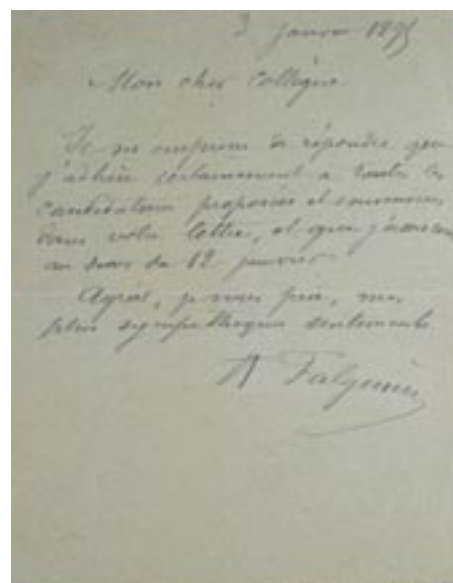 3 janvier 1895
Mon cher Collègue
Je m'empresse de répondre que
j'adhère certainement à toutes les
candidatures proposées et
dans votre lettre, et que
au du 12 janvier.
Agréez, je vous prie, mes
plus sympathiques sentiments
A Falguière